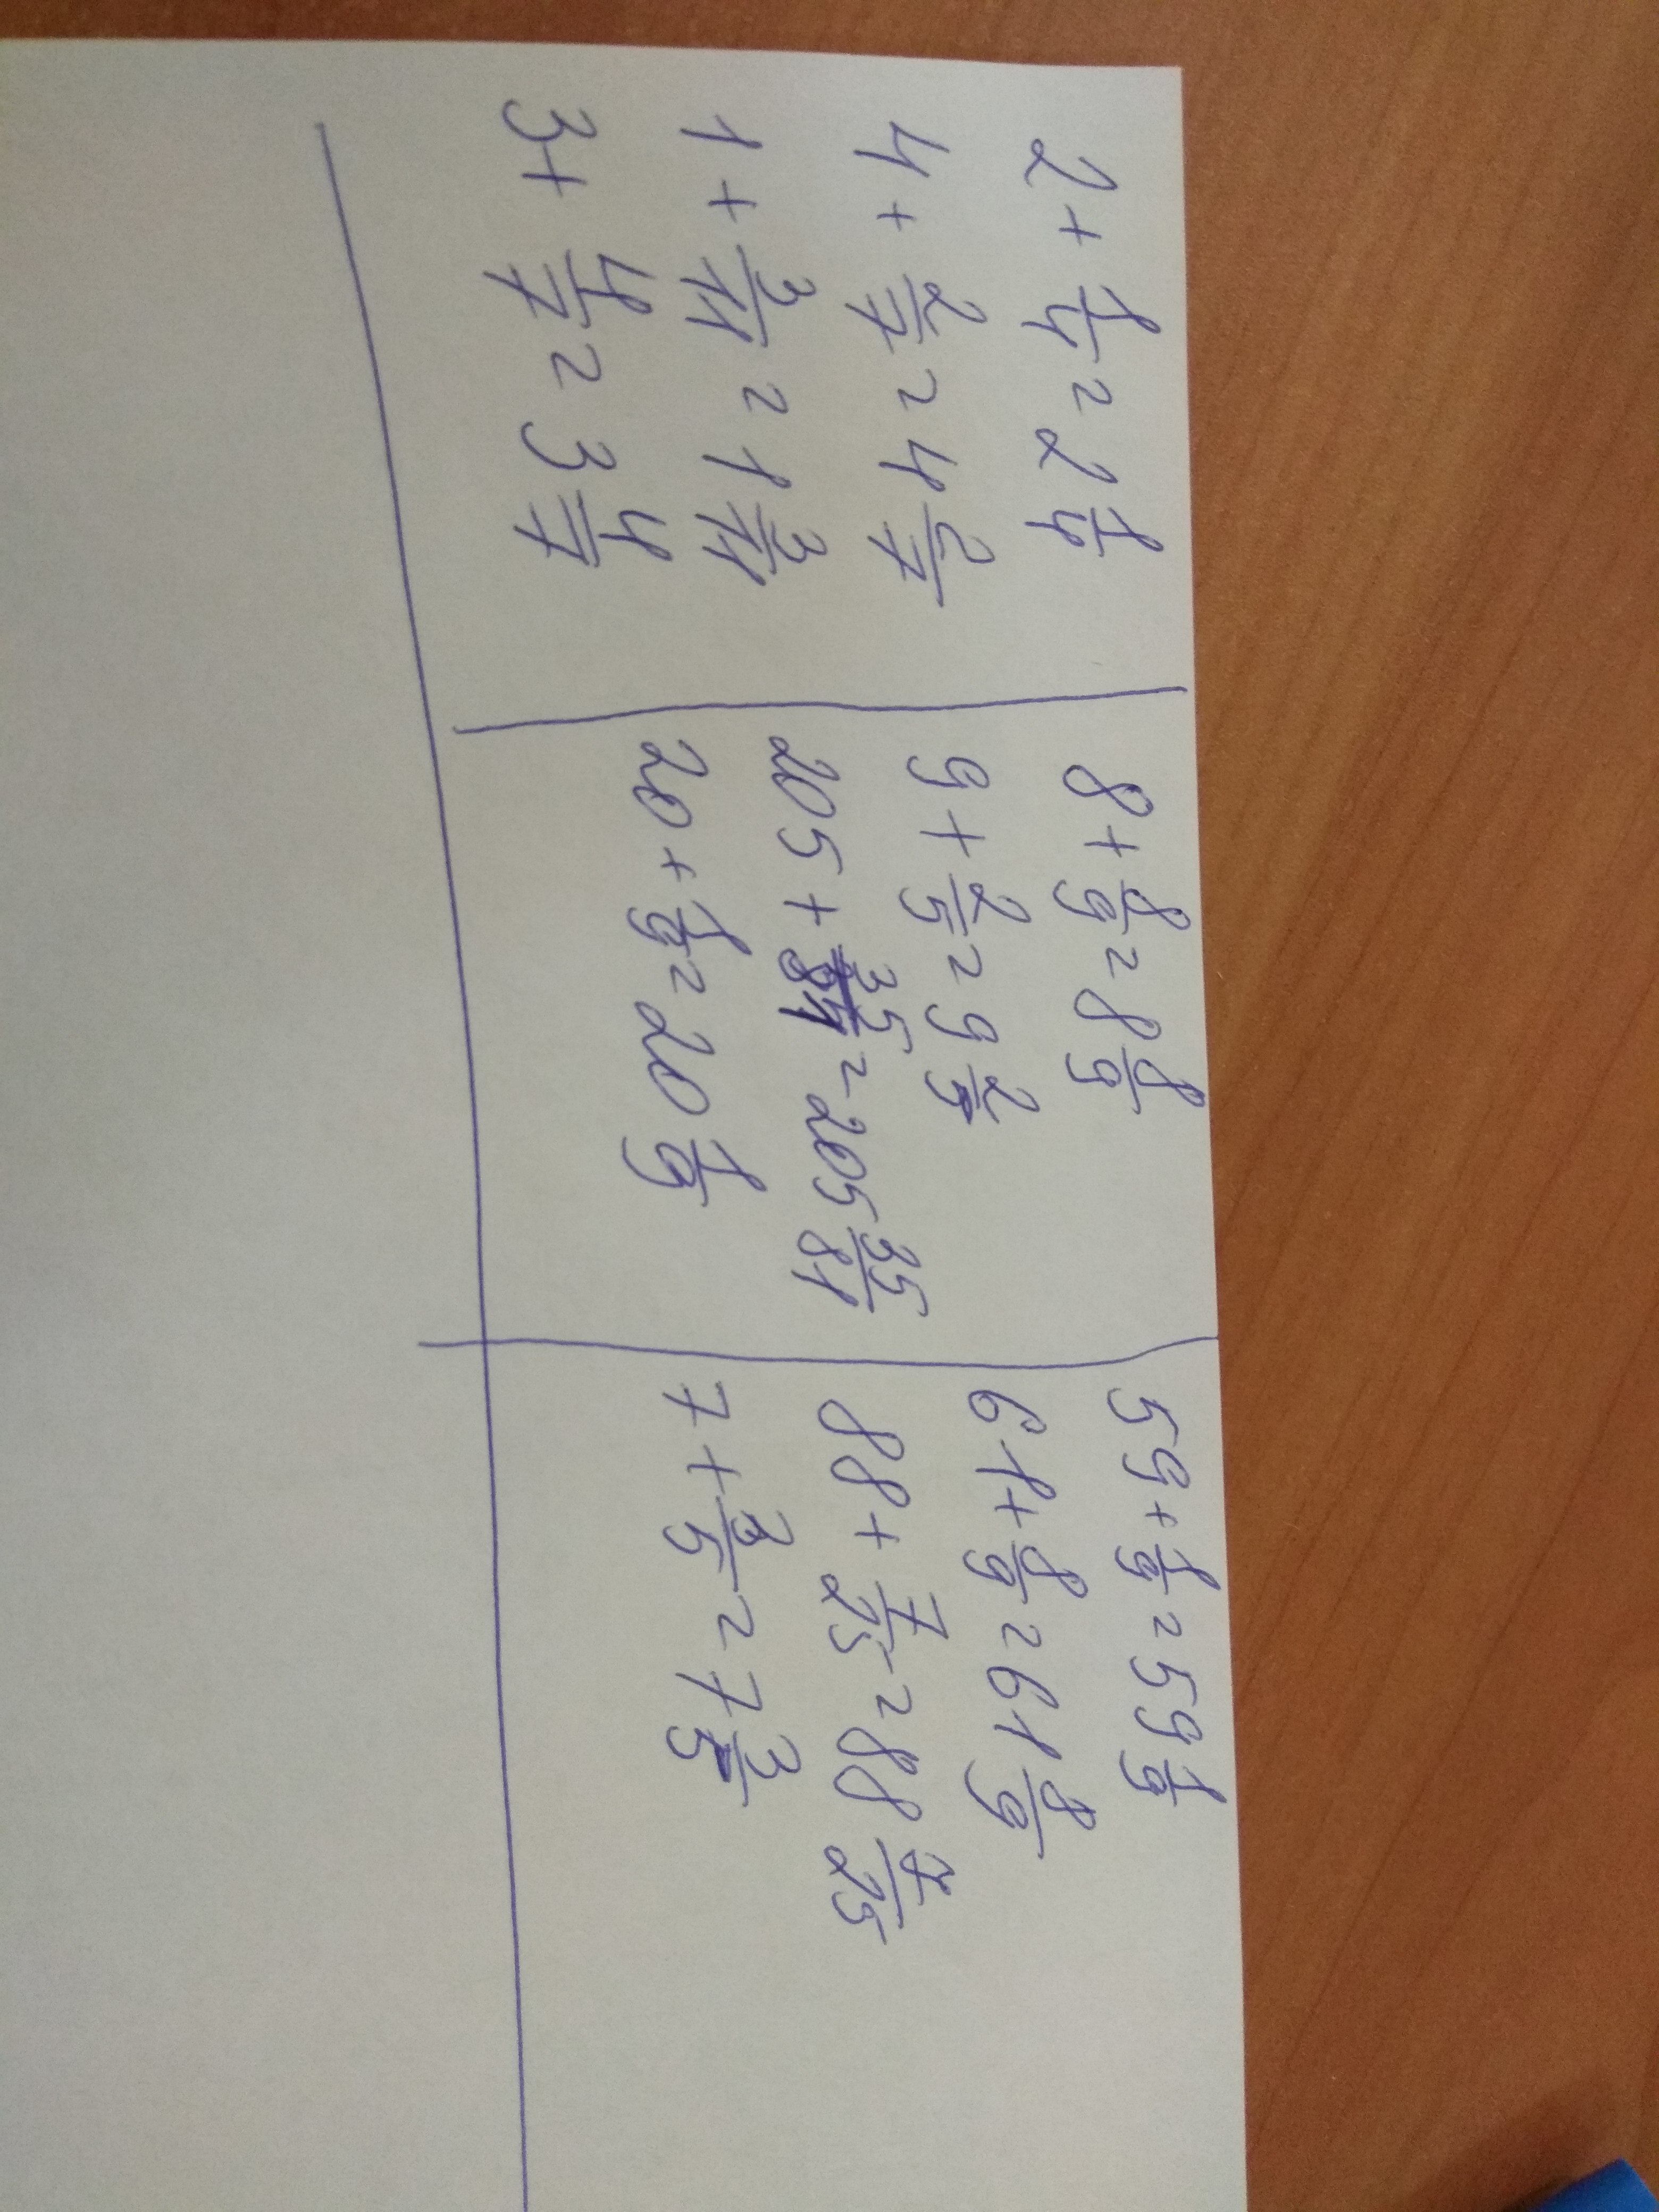 2 + 1/4 = 2 1/4
4 + 2/7 = 4 2/7
1 + 3/11 = 1 3/11
3 + 4/7 = 3 4/7
8 + 8/9 = 8 8/9
9 + 2/5 = 9 2/5
205 + 35/81 = 205 35/81
20 + 1/9 = 20 1/9
59 + 1/9 = 59 1/9
61 + 8/9 = 61 8/9
88 + 7/25 = 88 7/25
7 + 3/5 = 7 3/5